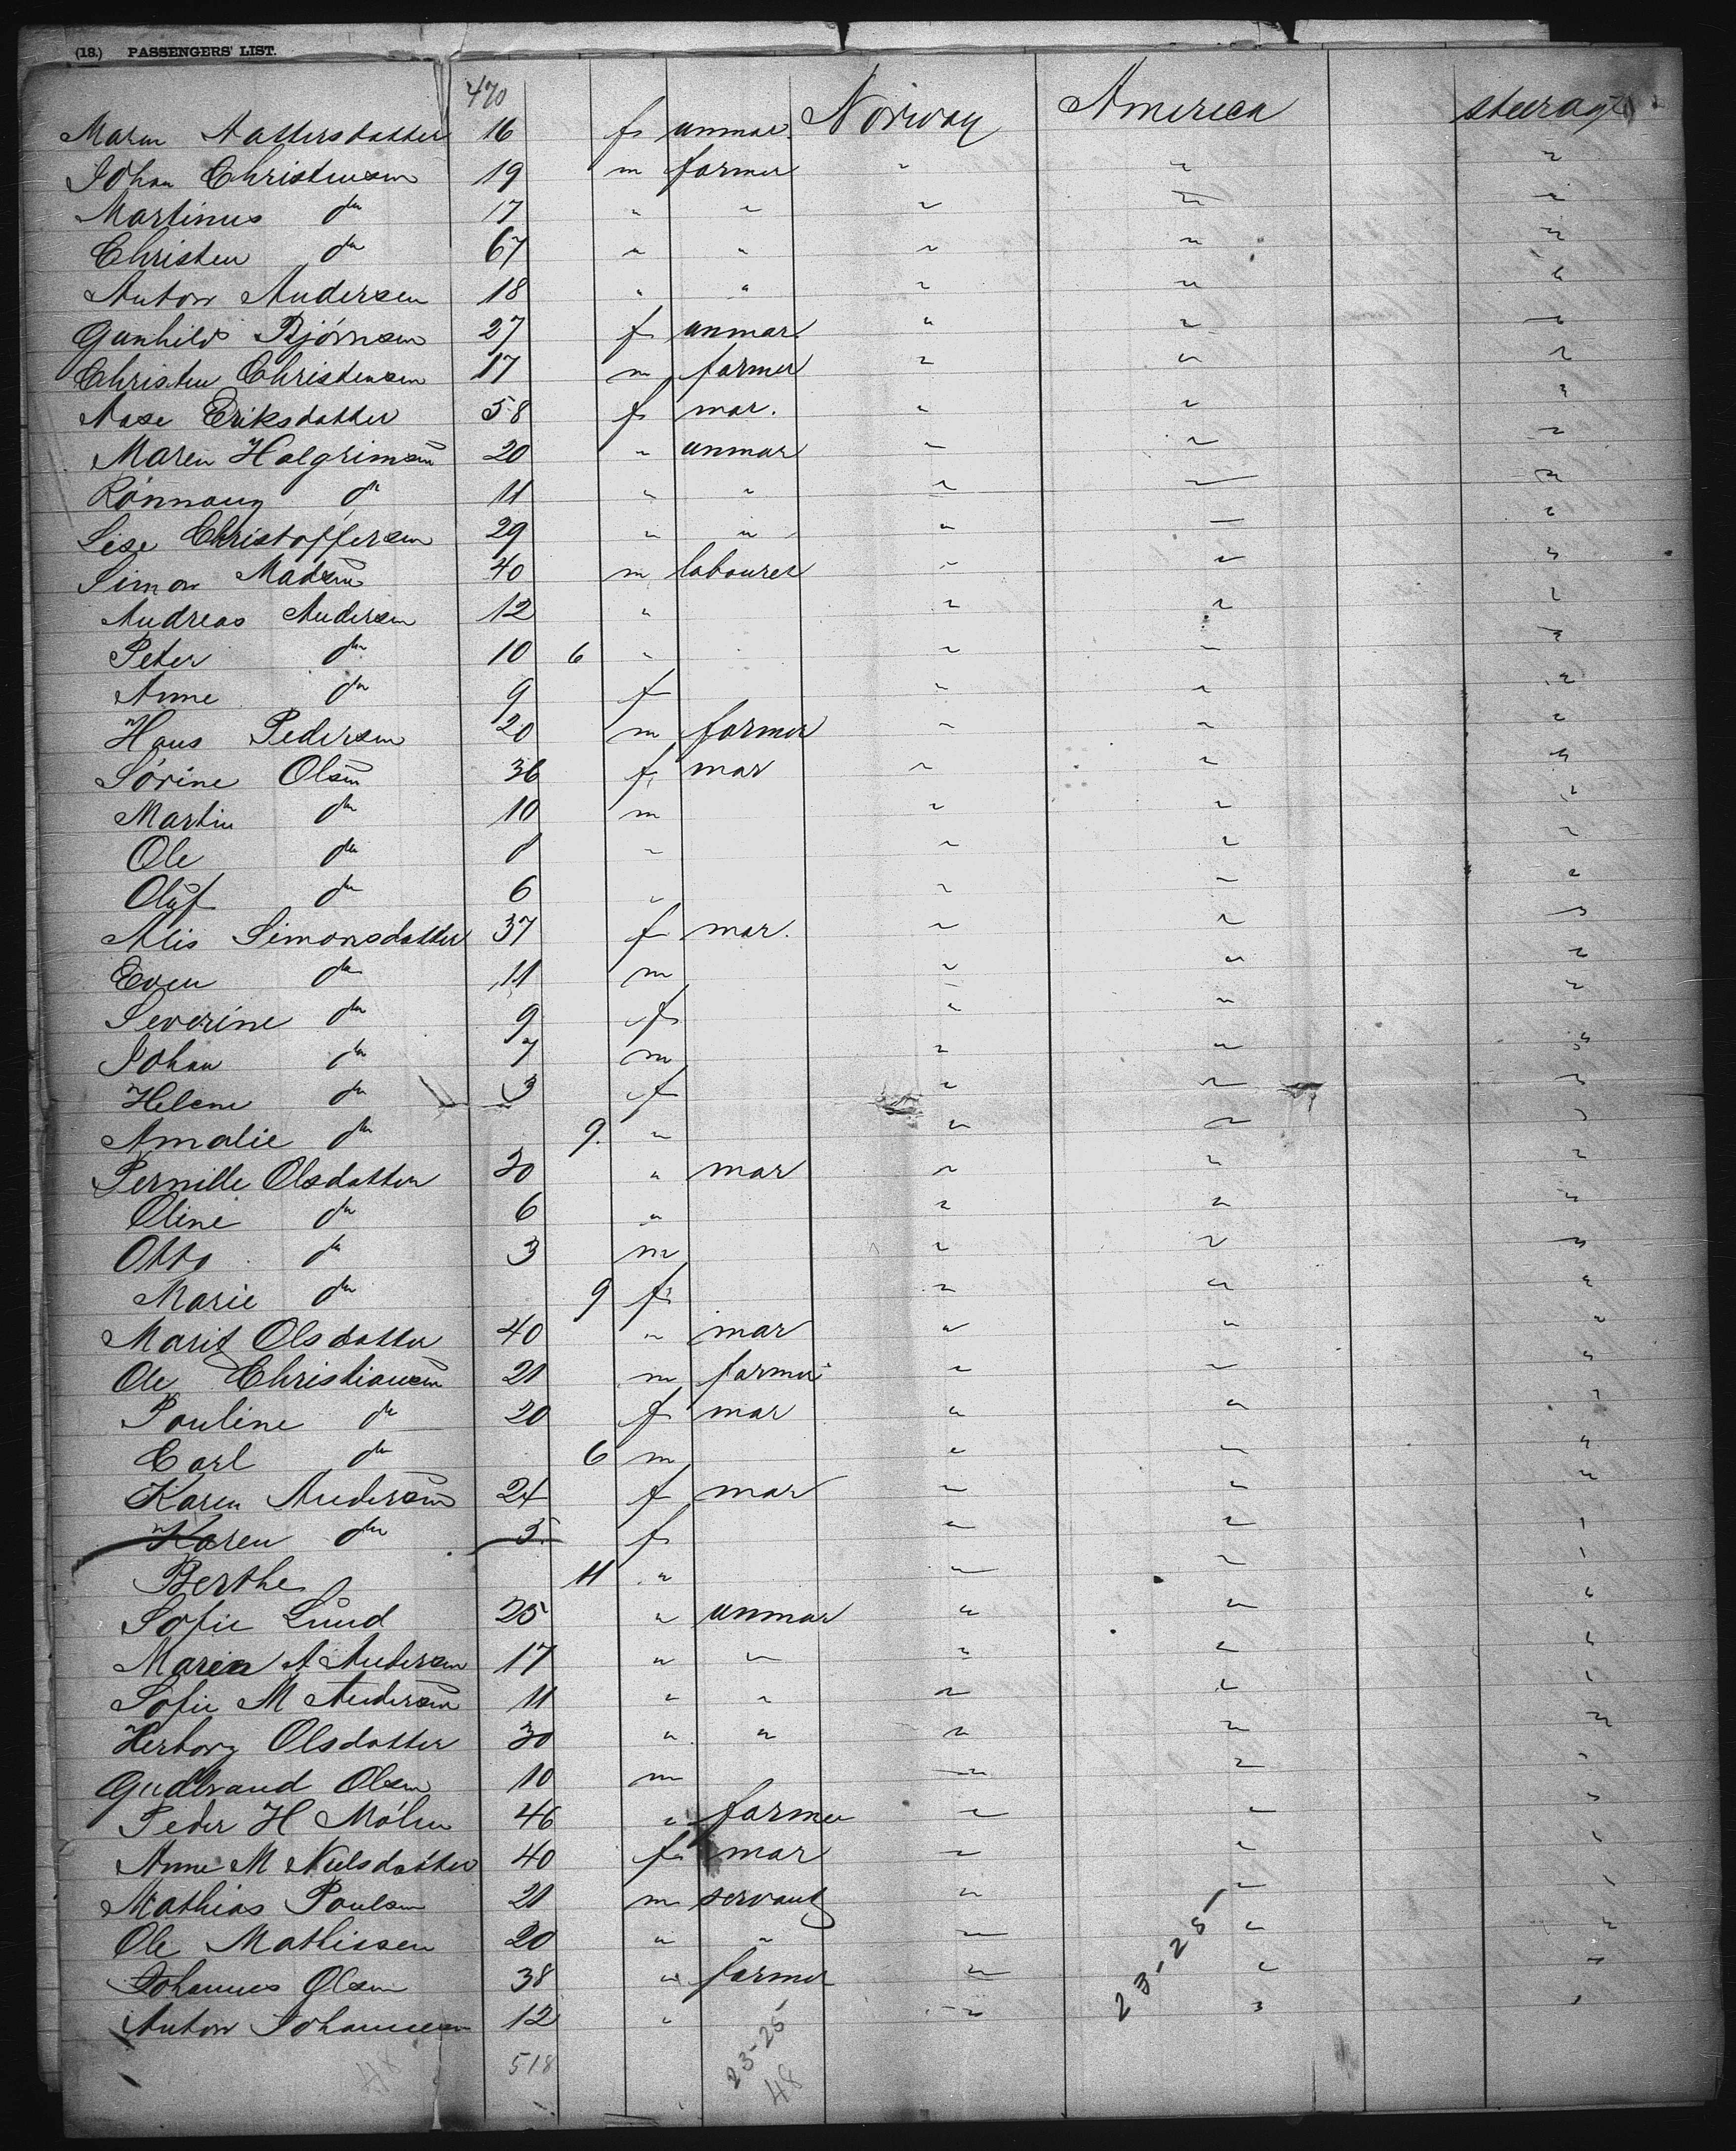 (18.) PASSENGERS' LIST.
470
Maren 16 f unmar. Norway America steerage
Johan Christensen 19 m farmer " " "
Martinus do 17 " " " " "
Christen do 67 " " " " "
Anton Andersen 18 " " " " "
Gunhild Bjørnsen 27 f unmar. " " "
Christen Christensen 17 m farmer " " "
Aase Eriksdatter 58 f mar. " " "
Maren Halgrimsen 20 " unmar " " "
Rønnaug do 11 " " " " "
Lise Christoffersen 29 " " " " "
Simon Madsen 40 m labourer " " "
Andreas Andersen 12 " " " "
Peter do 10 6 " " " "
Anne do 9 f " " "
Hans Pedersen 20 m farmer " " "
Sørine Olsen 36 f mar " " "
Martin do 10 m " " "
Ole do 8 " " " "
Oluf do 6 " " " "
Alis Simonsdatter 37 f mar. " " "
Even do 11 m " " "
Severine do 9 f " " "
Johan do 7 m " " "
Helene do 3 f " " "
Amalie do 9. " " " "
Pernille Olsdatter 30 " mar " " "
Oline do 6 " " " "
Otto do 3 m " " "
Marie do 9 f " " "
Marit Olsdatter 40 " mar " " "
Ole Christiansen 21 m farmer " " "
Pouline do 20 f mar " " "
Carl do 6 m " " "
Karen Andersen 24 f mar " " "
Karen do 3. f " " "
Berthe 11 " " " "
Sofie Lund 25 " unmar " " "
Maren A Andersen 17 " " " " "
Sofie M Andersen 11 " " " " "
Herborg Olsdatter 30 " " " " "
Gudbrand Olsen 10 m " " "
Peder H Mølen 46 " farmer " " "
Anne M Nielsdatter 40 f mar " " "
Mathias Poulsen 21 m servant " " "
Ole Mathissen 20 " " " " "
Johannes Olsen 38 " farmer " " "
Anton Johannesen 12 " " " "
23-25
48 518 23-25
48